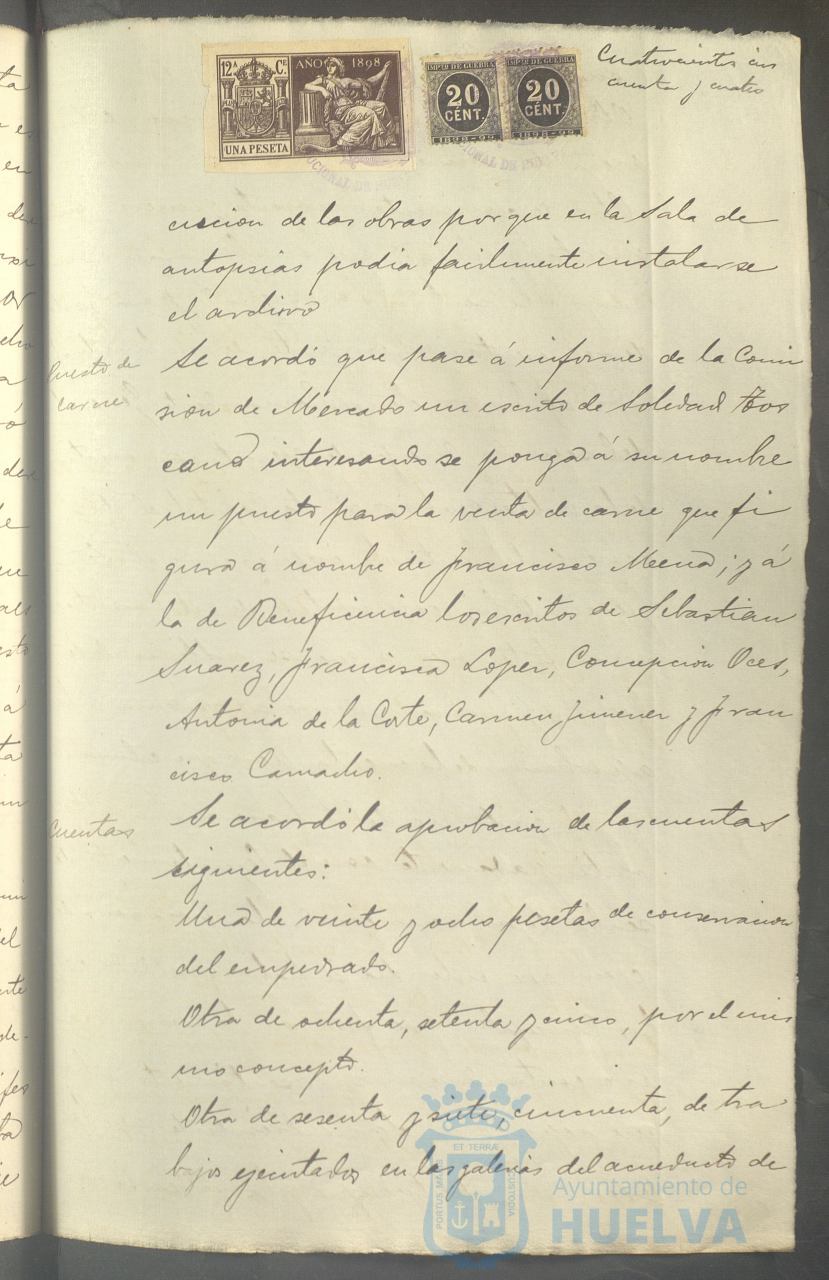 12ª Cᴱ AÑO 1898
UNA PESETA
IMPTO DE GUERRA
20
CENT.
1898-99
IMPTO DE GUERRA
20
CENT.
1898-99
Cuatrocientos cin
cuenta y cuatro
cucion de las obras porque en la Sala de
autopsias podia facilmente instalarse
el archivo
Puesto de
carne
Se acordó que pase á informe de la Comi
sion de Mercado un escrito de Soledad Tos
cano interesando se ponga á su nombre
un puesto para la venta de carne que fi
gura á nombre de Francisco Mena; y á
la de Beneficencia los escritos de Sebastian
Suarez, Francisca Lopez, Concepcion Oces,
Antonia de la Corte, Carmen Jimenez y Fran
cisco Camacho.
Cuentas
Se acordó la aprobacion de las cuentas
siguientes:
Una de veinte y ocho pesetas de conservacion
del empedrado.
Otra de ochenta, setenta y cinco, por el mis
mo concepto.
Otra de sesenta y siete, cincuenta, de tra
bajos ejecutados en las galerias del acueducto de
ET TERRÆ
PORTUS MARIS
CUSTODIA
Ayuntamiento de
HUELVA